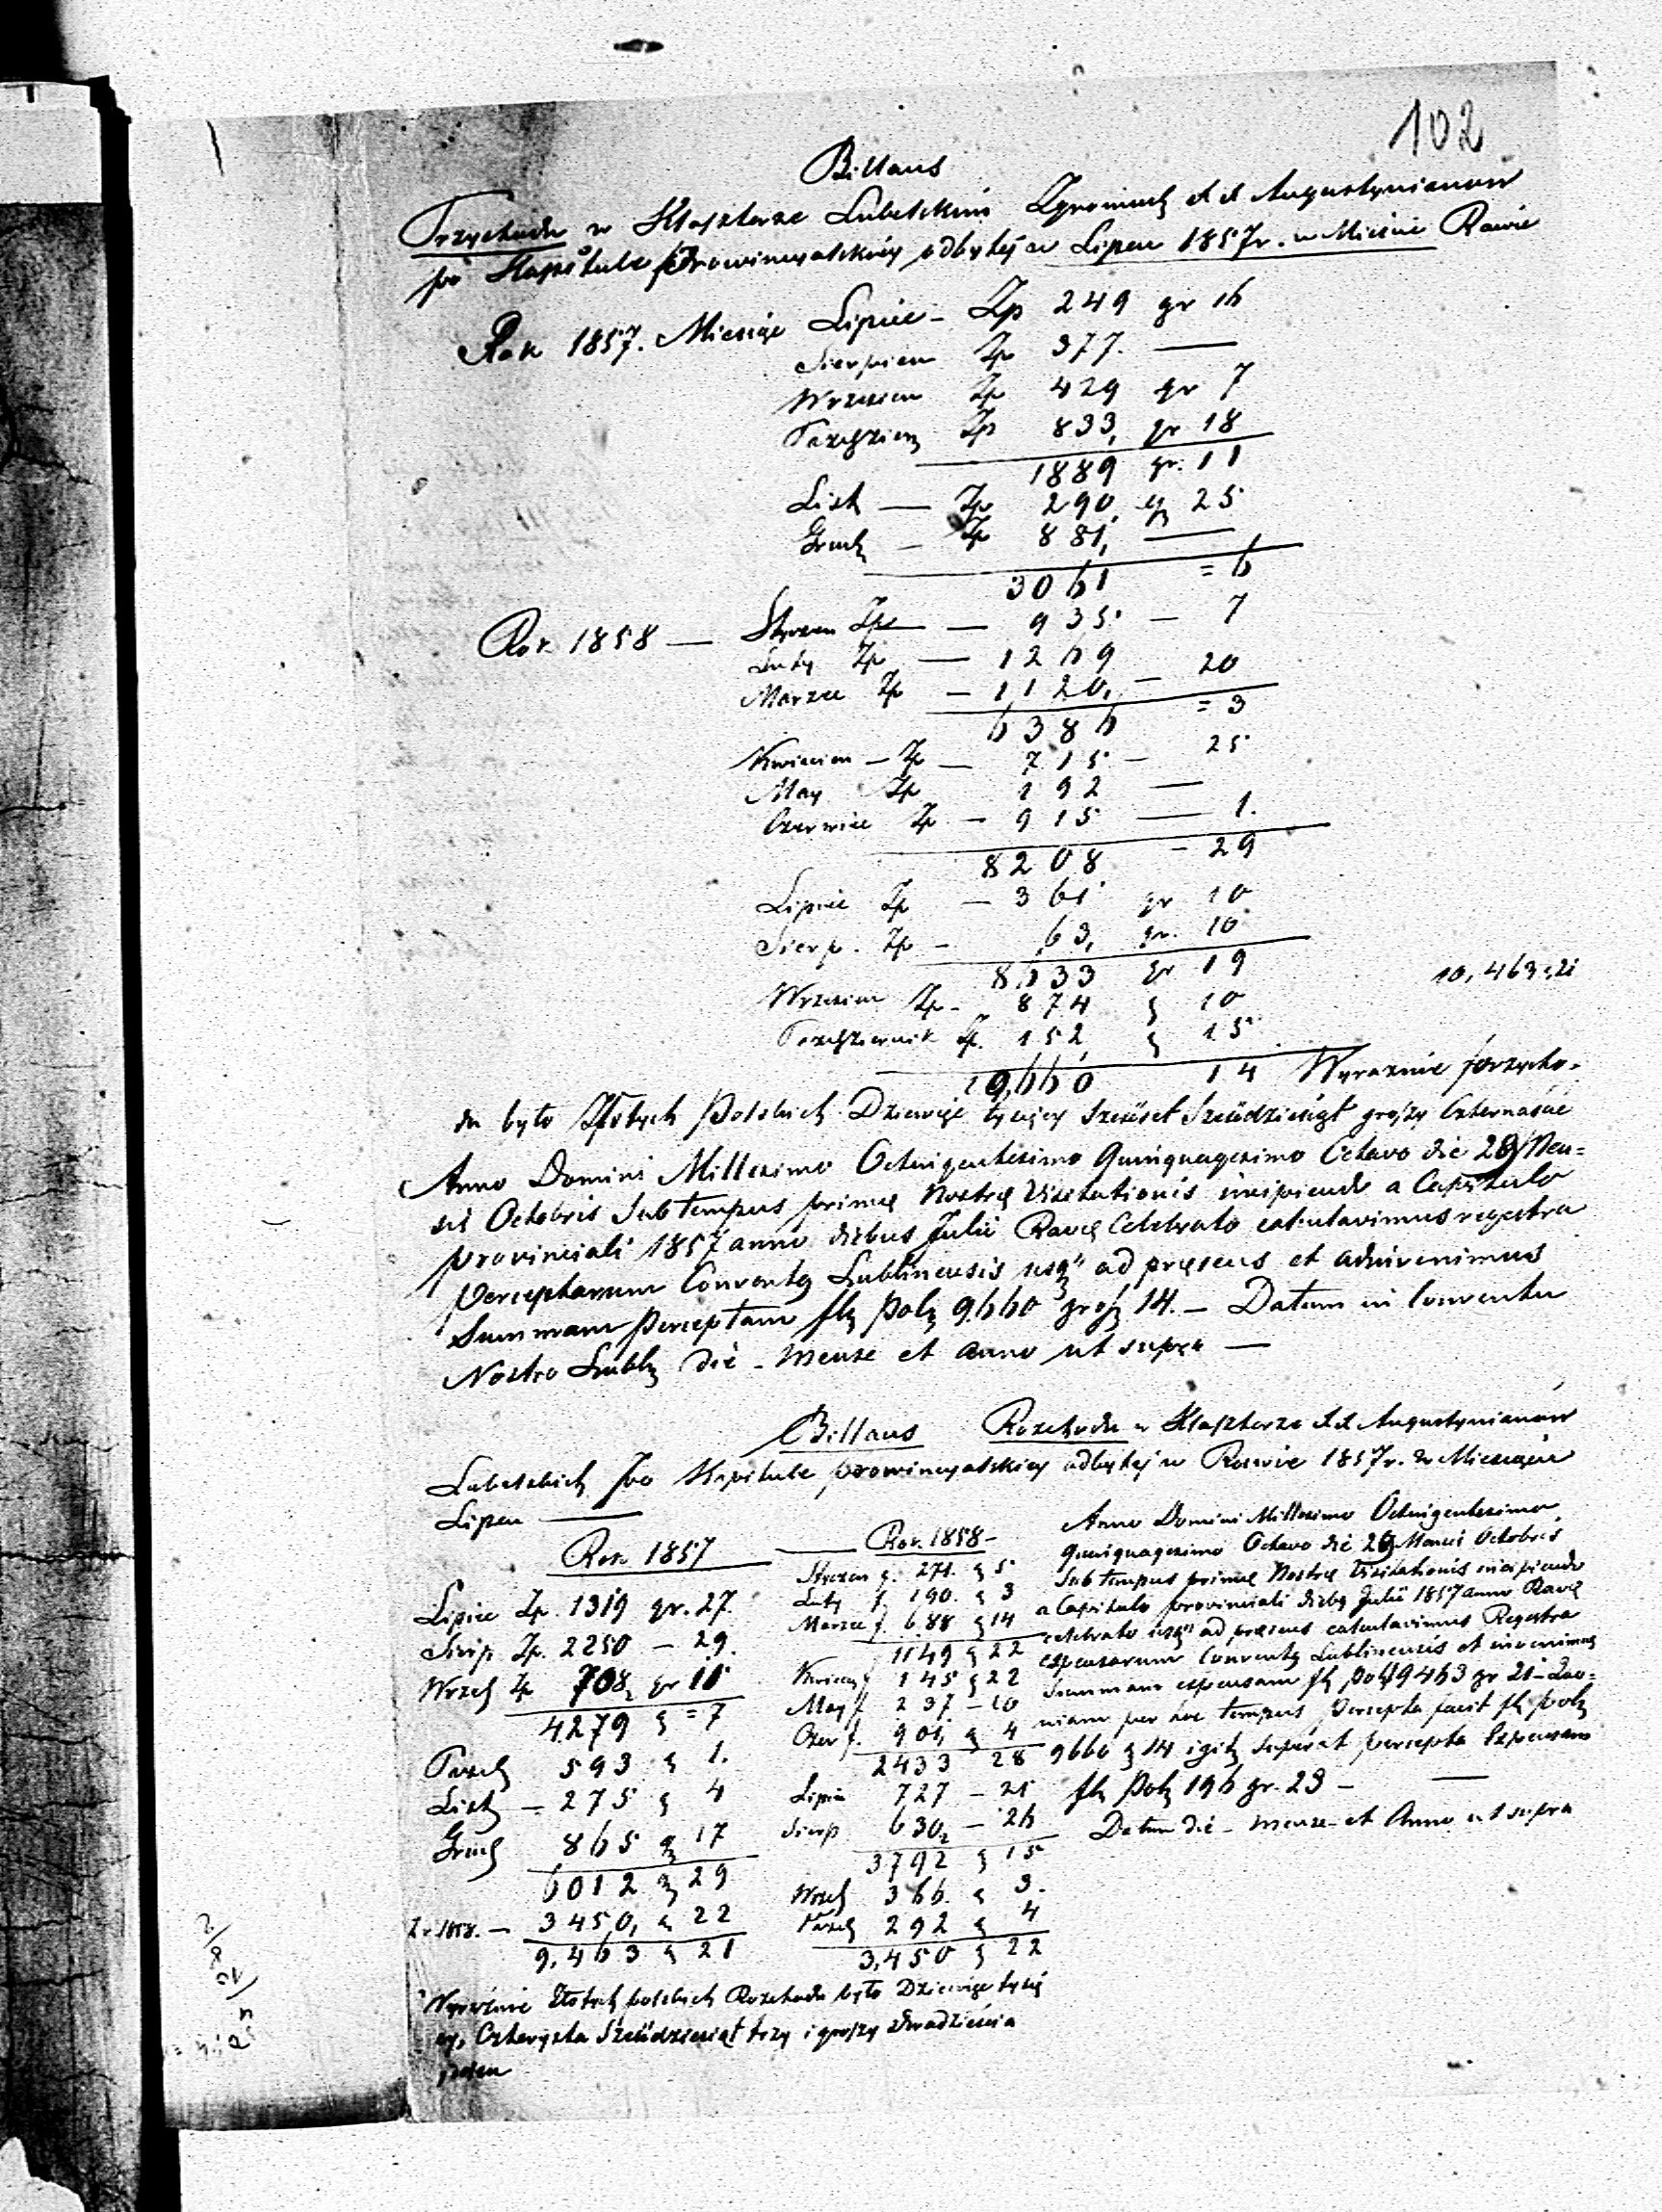 102
Billans
Przychodu w Klasztorze Lubelskim Zgromadz X X Augustynianow
po Kapitule Prowincyalskiey odbytej w Lipcu 1857 r. w Mieście Rawie
Rok 1857. Miesiąc Lipiec - Zp 249 gr 16
Sierpien Zp 377. —
Wrzesien Zp 429 gr 7
Pazdzien Zp 833, gr 18
1889 gr. 11
List — Zp 290, gr 25
Grud — Zp 881, —
3061 = 6
Rok 1858 — Styczen Zp — 935 — 7
Luty Zp — 1269
Marzec Zp — 1120, — 20
6386 = 3
Kwiecien — Zp — 715 — 25
May Zp 192 —
Czerwiec Zp — 915 — 1.
8208 - 29
Lipiec Zp — 361 gr 10
Sierp. Zp - 63, gr. 10
8633 gr 19
10,463 : 21
Wrzesien Zp - 874 g 10
Pazdziernik Zp. 152 g 15
9,660 14 Wyraznie przycho-
du było Złotych Polskich Dziewięc tysięcy Szescset Szescdziesiąt groszy Czternascie
Anno Domini Millesimo Octingentesimo Quinquagesimo Octavo die 29 Men=
sis Octobris Sub tempus primę Nostrę Visitationis incipiendo a Capitulo
provinciali 1857 anno diebus Julii Ravę Celebrato calculavimus regestra
perceptarum Conventq Lublinensis usq" ad pręsens et adinvenimus
Summam Perceptam fl polq 9660 grosz 14. — Datum in Conventu
Nostro Lublq die - Mense et Anno ut supra —
Billans Rozchodu w Klasztorze X X Augustynianow
Lubelskich po Kapitule prowincyalskiey odbytej w Rawie 1857 r. w Miesiącu
Lipcu —
Rok 1857
Lipiec Zp. 1319 gr. 27.
Sierp Zp. 2250 — 29.
Wrzes Zp 708, gr 11
4279 g = 7
Pazd 593 g 1.
List — 275 g 4
Grud 865 g 17
6012 g 29
Z r 1858. — 3450, g 22
9,463 g 21
Wyraźnie Złotych polskich Rozchodu było Dziewięc tysię
cy, Czterysta Szescdziesiąt trzy i groszy dwadzieścia
jeden
Rok 1858 -
Styczen f. 271. g 5
Luty f. 190. g 3
Marzec f. 688 g 14
1149 g 22
Kwiec f 145 g 22
May f. 237 — 10
Czer f. 901, g 4
2433 28
Lipiec 727 — 21
Sierp 630, — 26
3792 g 15
Wrzes 366. g 3.
Pazd 292 g 4
3,450 g 22
Anno Domini Millesimo Octingentesimo
Quinquagesimo Octavo die 29 Mensis Octobris
Sub tempus primę Nostrę Visitationis incipiendo
a Capitulo provinciali diebq Julii 1857 anno Ravę
celebrato usq" ad pręsens calculavimus Regestra
expensarum Conventq Lublinensis et invenimus
Summam expensam fl pol 9463 gr 21 — Quo=
niam per hoc tempus Percepta facit fl polq
9660 g 14 igitq superat percepta Expensam
fl Polq 196 gr. 23 — —
Datum die - mense - et Anno ut supra